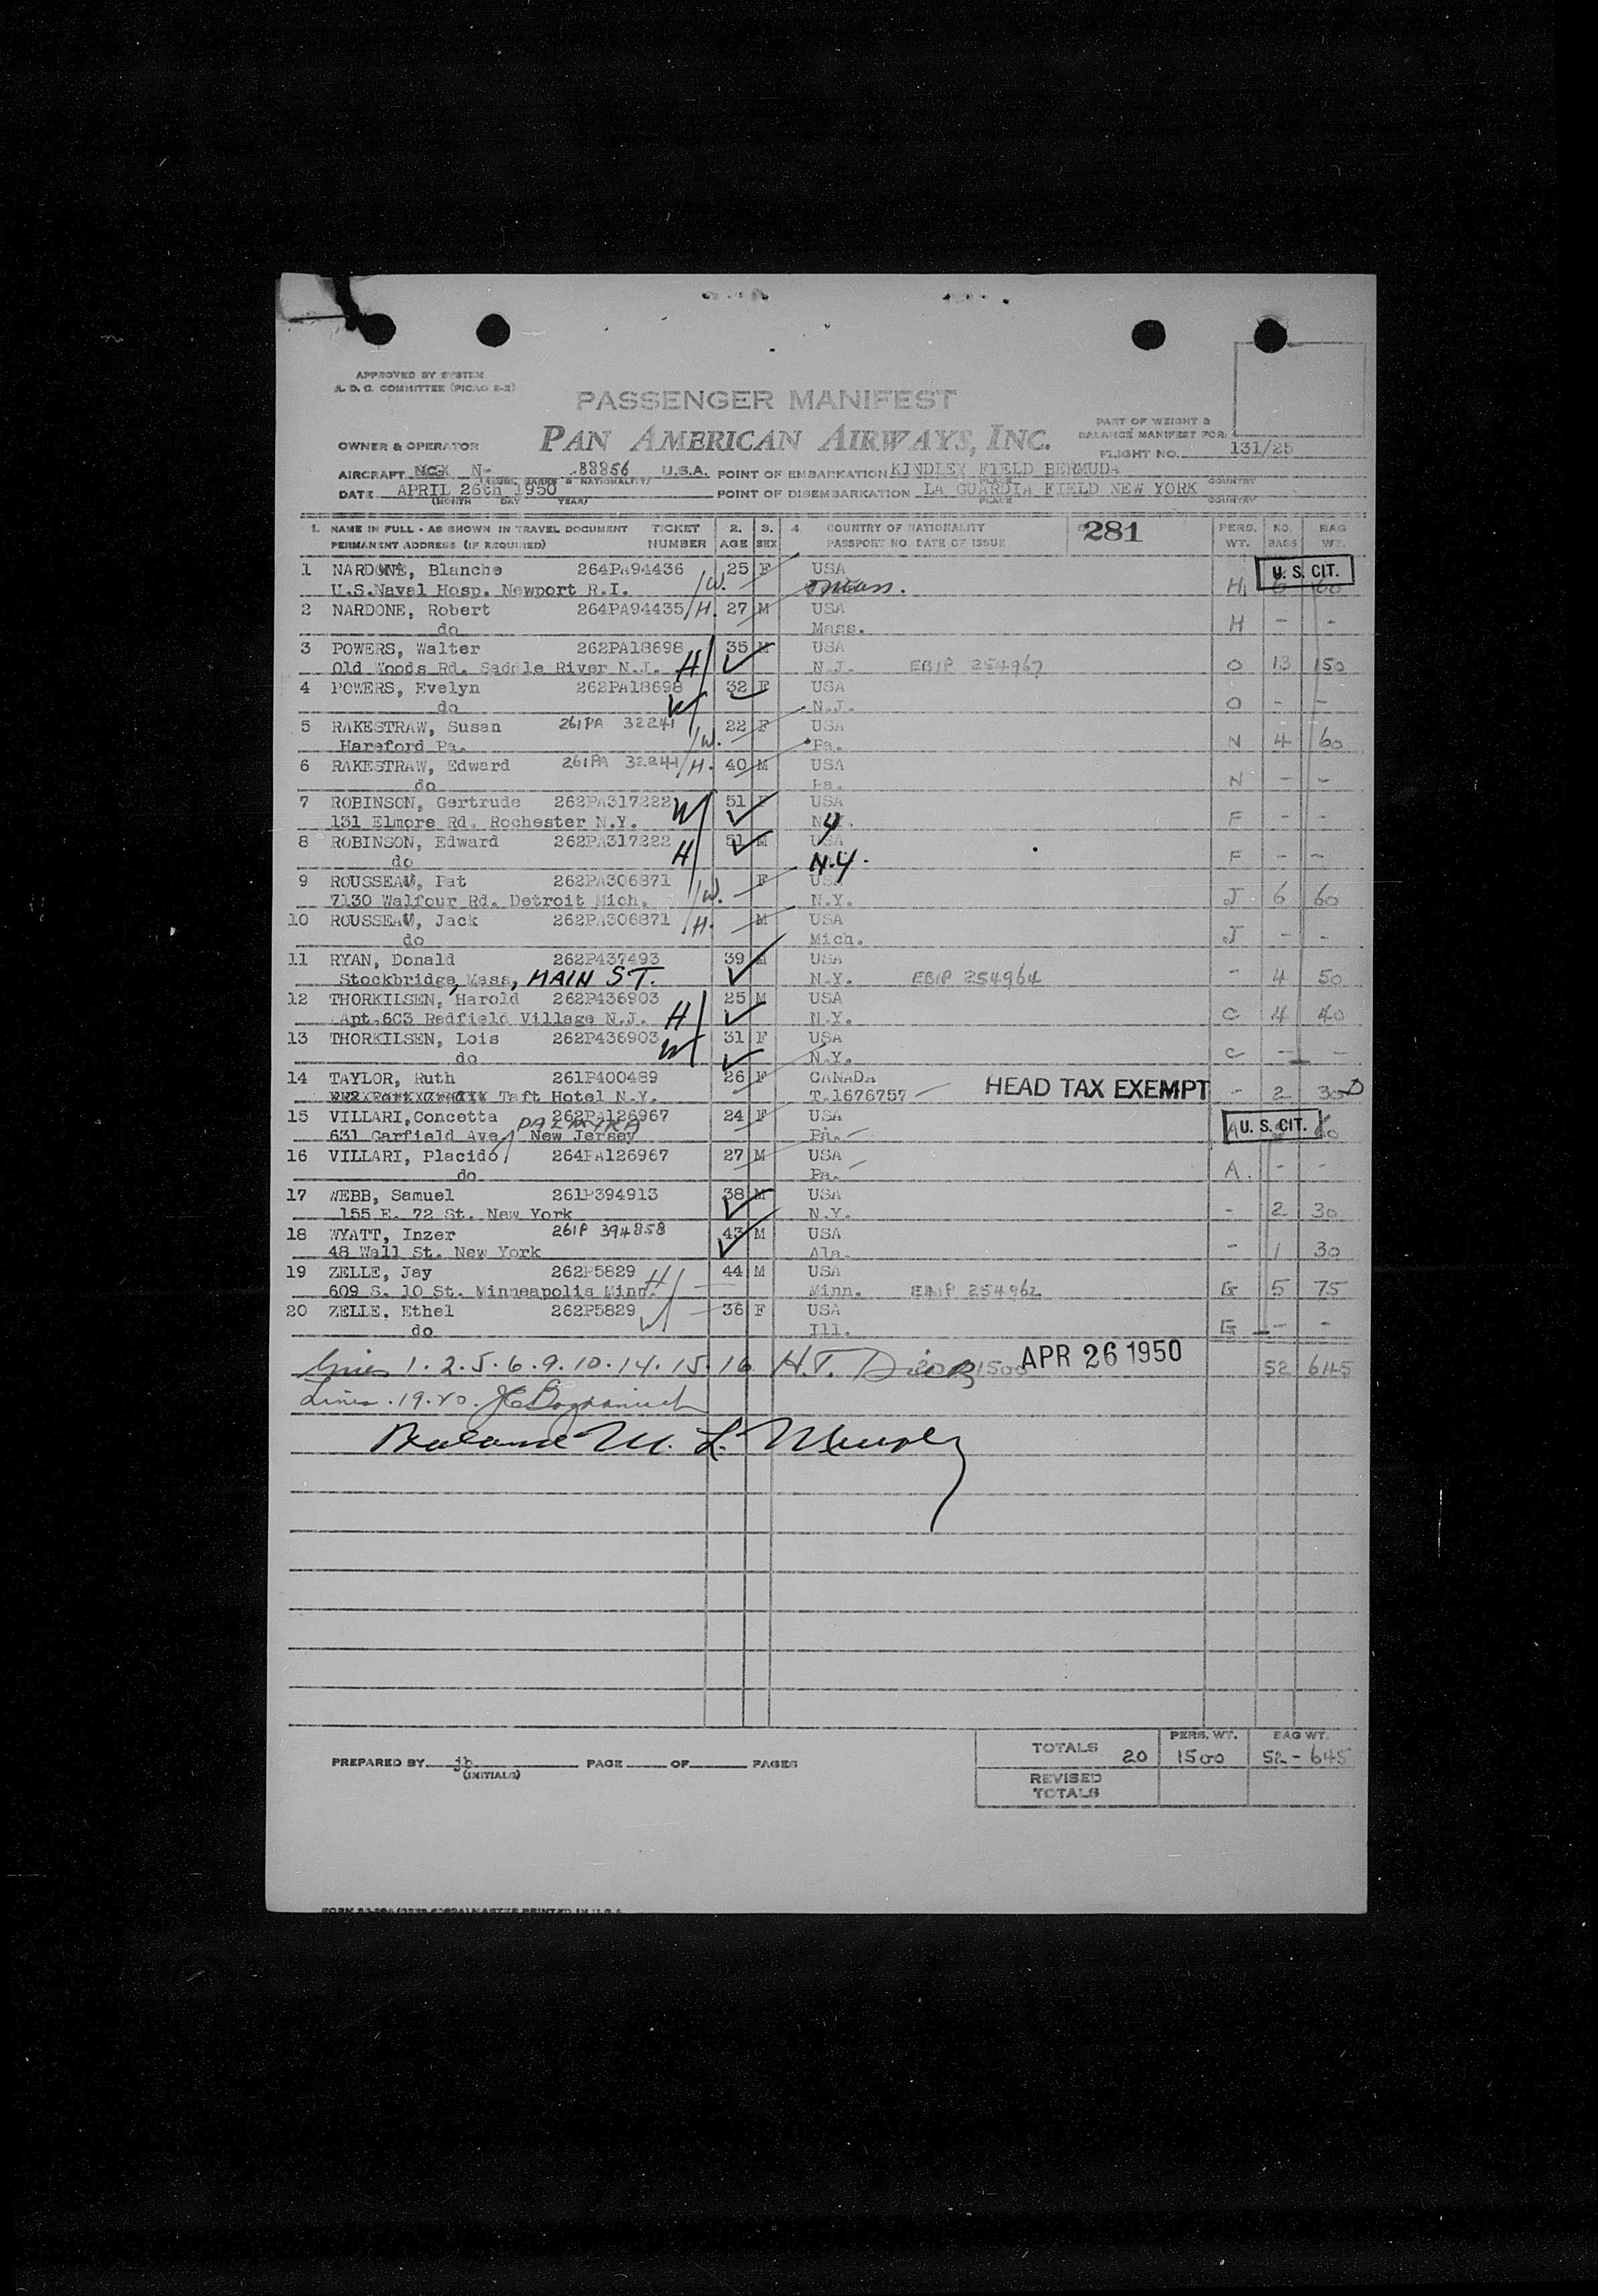 APPROVED BY SYSTEM
A. D. C. COMMITTEE (PICAO 2-2)
PASSENGER MANIFEST
OWNER & OPERATOR PAN AMERICAN AIRWAYS, INC.
PART OF WEIGHT &
BALANCE MANIFEST FOR:
FLIGHT NO. 131/25
AIRCRAFT N- 88856 U.S.A. POINT OF EMBARKATION KINDLEY FIELD BERMUDA
DATE APRIL 26th 1950 POINT OF DISEMBARKATION LA GUARDIA FIELD NEW YORK
(MONTH DAY YEAR) PLACE COUNTRY
1. NAME IN FULL - AS SHOWN IN TRAVEL DOCUMENT TICKET 2. 3. 4. COUNTRY OF NATIONALITY 281 PERS. NO. BAG
PERMANENT ADDRESS (IF REQUIRED) NUMBER AGE SEX PASSPORT NO. DATE OF ISSUE WT. BAGS WT.
1 NARDONE, Blanche 264PA94436 25 F USA U. S. CIT.
U.S.Naval Hosp. Newport R.I. /W. Mass. H 60
2 NARDONE, Robert 264PA94435 /H. 27 M USA
do Mass. H - -
3 POWERS, Walter 262PA18698 35 M USA
Old Woods Rd. Saddle River N.J. H N.J. EBIP 254967 O 13 150
4 POWERS, Evelyn 262PA18698 32 F USA
do W N.J. O - -
5 RAKESTRAW, Susan 261PA 32241 22 F USA
Hareford Pa. /W. Pa. N 4 60
6 RAKESTRAW, Edward 261PA 32241 /H. 40 M USA
do Pa. N - -
7 ROBINSON, Gertrude 262PA317222 W 51 F USA
131 Elmore Rd. Rochester N.Y. N.Y. F - -
8 ROBINSON, Edward 262PA317222 H 51 M USA
do N.Y. F - -
9 ROUSSEAU, Pat 262PA306871 F USA
7130 Walfour Rd. Detroit Mich. /W. N.Y. J 6 60
10 ROUSSEAU, Jack 262PA306871 /H. M USA
do Mich. J - -
11 RYAN, Donald 262P437493 39 M USA
Stockbridge, Mass, MAIN ST. N.Y. EBIP 254964 - 4 50
12 THORKILSEN, Harold 262P436903 25 M USA
Apt.6C3 Redfield Village N.J. H N.Y. C 4 40
13 THORKILSEN, Lois 262P436903 31 F USA
do W N.Y. C - -
14 TAYLOR, Ruth 261P400489 26 F CANADA
Taft Hotel N.Y. T.1676757 HEAD TAX EXEMPT - 2 30
15 VILLARI,Concetta 262PA126967 24 F USA
631 Garfield Ave. PALMYRA New Jersey Pa. A U. S. CIT.
16 VILLARI, Placido 264PA126967 27 M USA
do Pa. A. - -
17 WEBB, Samuel 261P394913 38 M USA
155 E. 72 St. New York N.Y. - 2 30
18 WYATT, Inzer 261P 394858 43 M USA
48 Wall St. New York Ala. - 1 30
19 ZELLE, Jay 262P5829 H 44 M USA
609 S. 10 St. Minneapolis Minn. Minn. EBIP 254962 G 5 75
20 ZELLE, Ethel 262P5829 W 36 F USA
do Ill. G - -
Lines 1.2.5.6.9.10.14.15.16 H.T. 1500 APR 26 1950 52 645
Lines.19.20.
Balance M. L.
TOTALS 20 PERS. WT. 1500 BAG WT. 52-645
PREPARED BY jb PAGE OF PAGES
(INITIALS)
REVISED
TOTALS